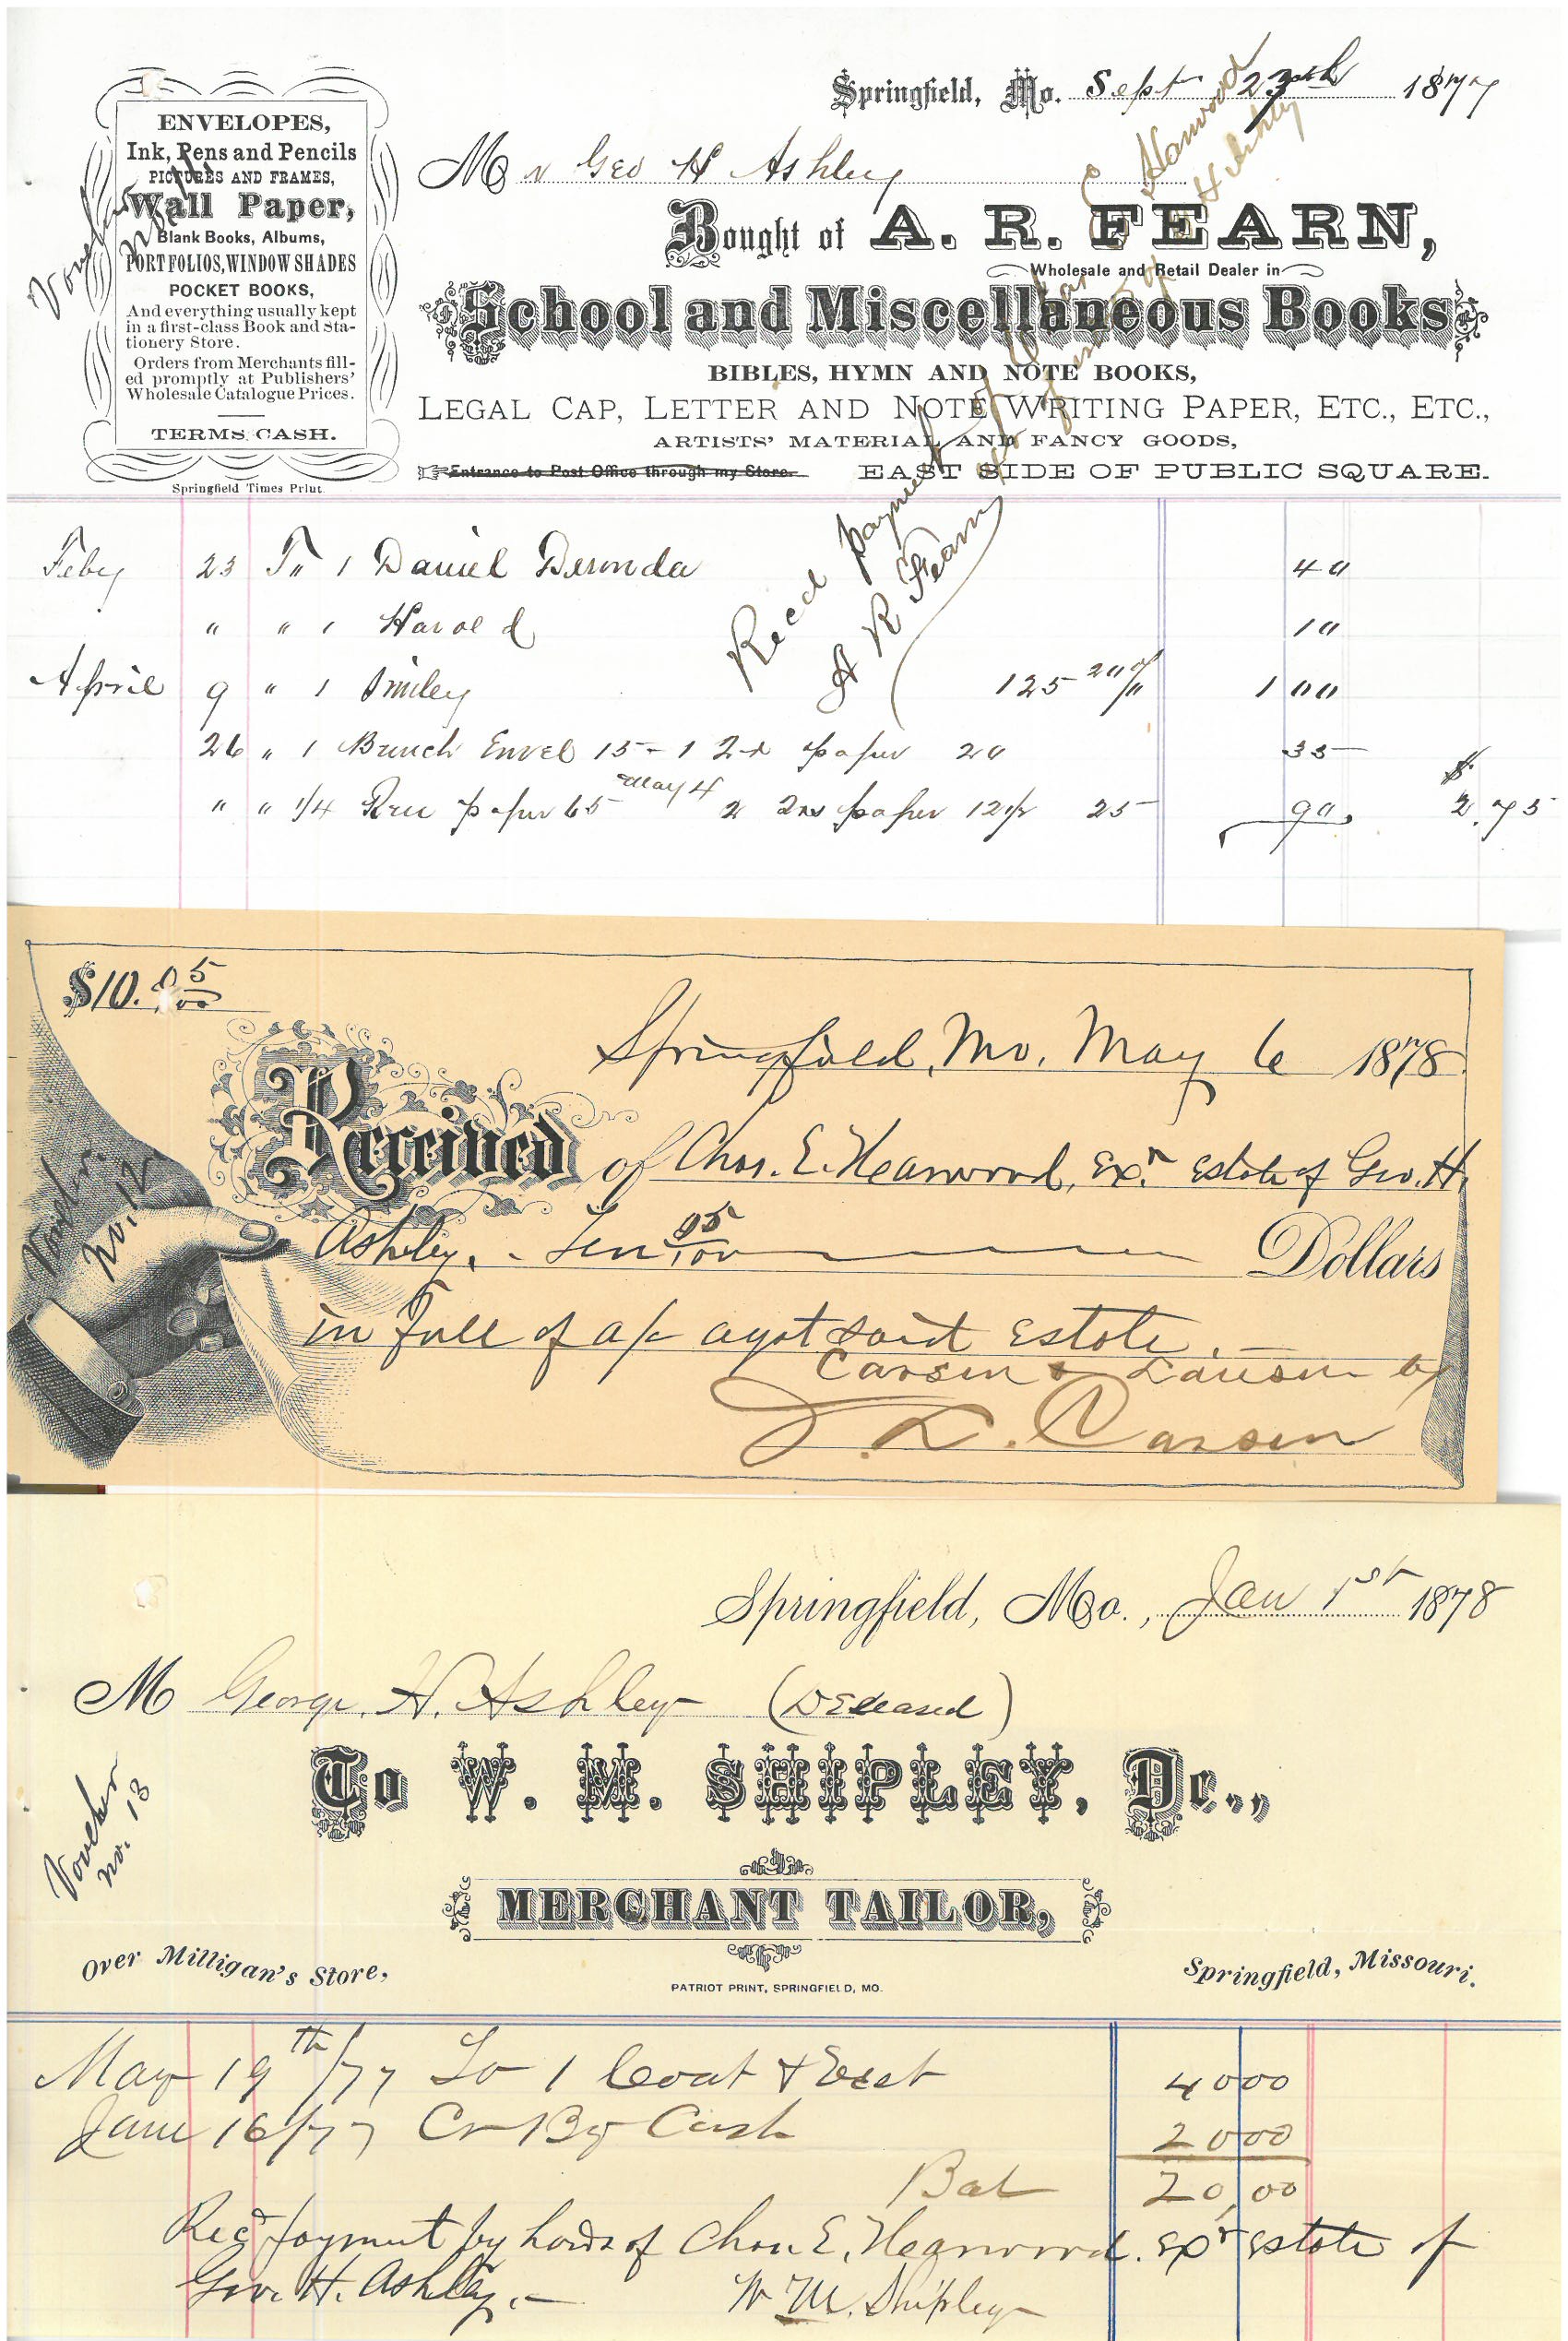 ENVELOPES,
Ink, Pens and Pencils
PICTURES AND FRAMES,
Wall Paper,
Blank Books, Albums,
PORTFOLIOS, WINDOW SHADES
POCKET BOOKS,
And everything usually kept
in a first-class Book and Sta-
tionery Store.
Orders from Merchants fill-
ed promptly at Publishers'
Wholesale Catalogue Prices.
TERMS CASH.
Springfield Times Print
Springfield, Mo. Sept 1877
Mr Geo H Ashley
Bought of A. R. FEARN,
Wholesale and Retail Dealer in
School and Miscellaneous Books
BIBLES, HYMN AND NOTE BOOKS,
LEGAL CAP, LETTER AND NOTE WRITING PAPER, ETC., ETC.,
ARTISTS' MATERIAL AND FANCY GOODS,
Entrance to Post Office through my Store. EAST SIDE OF PUBLIC SQUARE.
Recd payment of Chas E Harwood
A R Fearn
Feby 23 To 1 Daniel Deronda 40
" " 1 Harold 10
April 9 " 1 Smiley 125 20% 1 00
26 " 1 Bunch Envel 15 - 1 paper 20 35
" " 1/4 Rm paper 65 May 4 2 paper 12½ 25 90 $2.75
$10.05/100
Springfield, Mo. May 6 1878
Voucher
No. 12
Received of Chas. E. Hearwood, Exr. Estate of Geo. H.
Ashley. - Ten 05/100 Dollars
in full of a/c agst said Estate. —
Carson & Lawson by
J. L. Carson
Springfield, Mo., Jan 1st 1878
M George. H. Ashley (Deceased)
To W. M. SHIPLEY, Dr.,
Voucher
no. 13
MERCHANT TAILOR,
Over Milligan's Store, Springfield, Missouri.
PATRIOT PRINT, SPRINGFIELD, MO.
May 19th/77 To 1 Coat & Vest 40 00
June 16/77 Cr By Cash 20 00
Bal 20,00
Recd payment by hands of Chas E. Hearwood. Exr Estate of
Geo. H. Ashley. — W M. Shipley